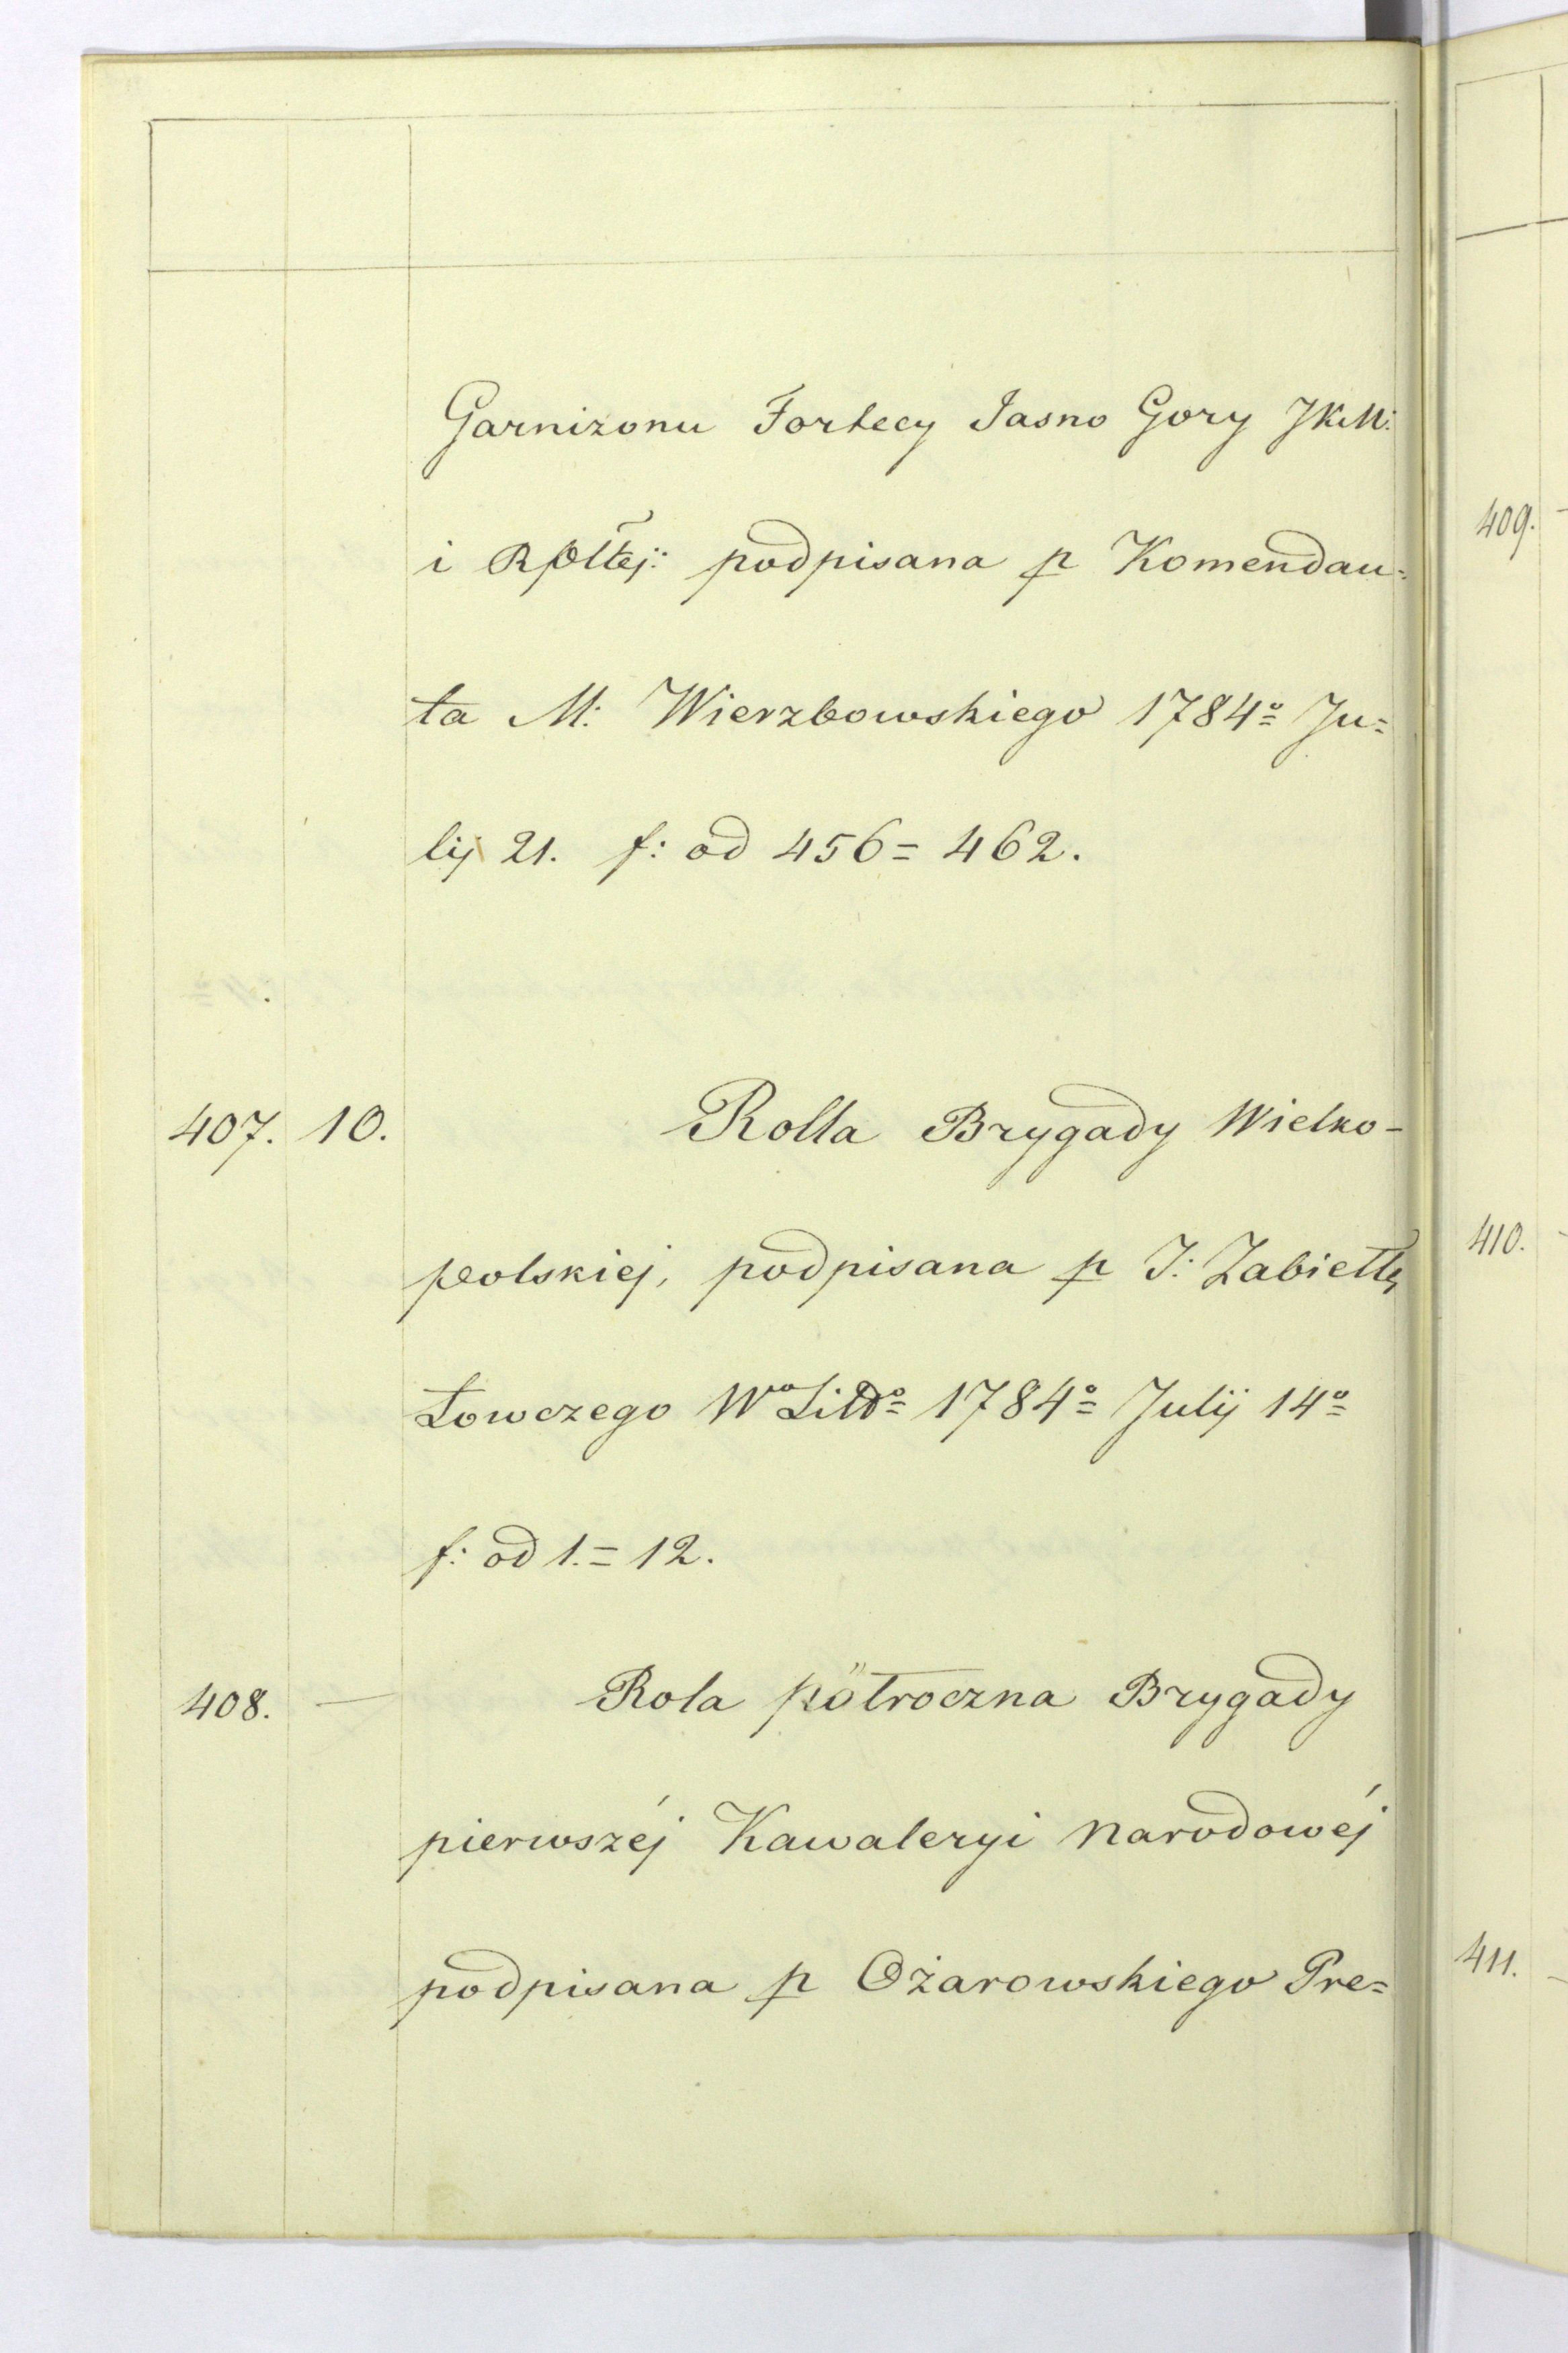 Garnizonu Fortecy Jasno Gory JKM:
i Rpltej: podpisana p Komendan=
ta M: Wierzbowskiego 1784o Ju=
lij 21. f: od 456 = 462.
407. 10. Rolla Brygady Wielko-
polskiej, podpisana p J: Zabiełłę
Łowczego Wo Litto 1784o Julij 14o
f: od 1. = 12.
408. — Rola półroczna Brygady
pierwszéj Kawaleryi Narodowéj
podpisana p Ożarowskiego Pre=
409.
410.
411.